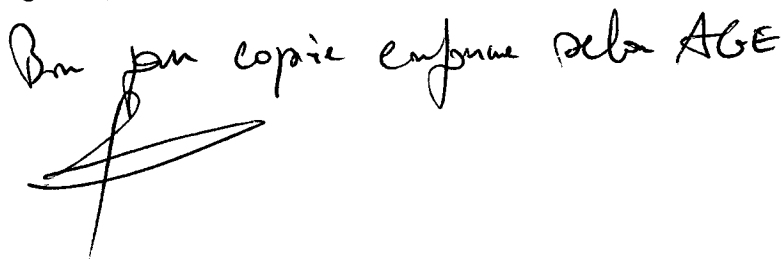 Bon pour copie conforme selon AGE